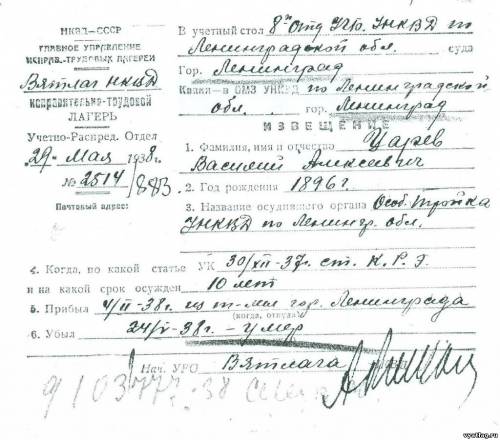 НКВД—СССР
ГЛАВНОЕ УПРАВЛЕНИЕ
ИСПРАВ.-ТРУДОВЫХ ЛАГЕРЕЙ
Вятлаг НКВД
ИСПРАВИТЕЛЬНО-ТРУДОВОЙ
ЛАГЕРЬ
Учетно-Распред. Отдел
„29“ Мая 1938 г.
№ 2514/883
Почтовый адрес:
В учетный стол 8го Отд УГБ УНКВД по
Ленинградской обл. суда
Гор. Ленинград
Копия—в ОМЗ УНКВД по Ленинградской
обл. гор. Ленинград
ИЗВЕЩЕНИЕ
1. Фамилия, имя и отчество Царев
Василий Алексеевич
2. Год рождения 1896 г.
3. Название осудившего органа Особ. тройка
УНКВД по Ленингр. обл.
4. Когда, по какой статье УК 30/XII-37г. ст. К.Р.Э.
и на какой срок осужден 10 лет
5. Прибыл 4/II-38г. из т-мы гор. Ленинграда
(когда, откуда)
6. Убыл 24/V-38г. — умер
Нач. УРО Вятлага
vyatlag.ru